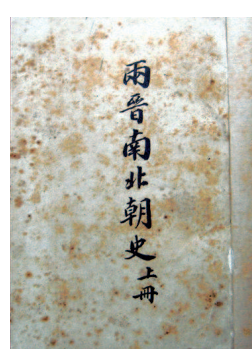 兩晉南北朝史上冊